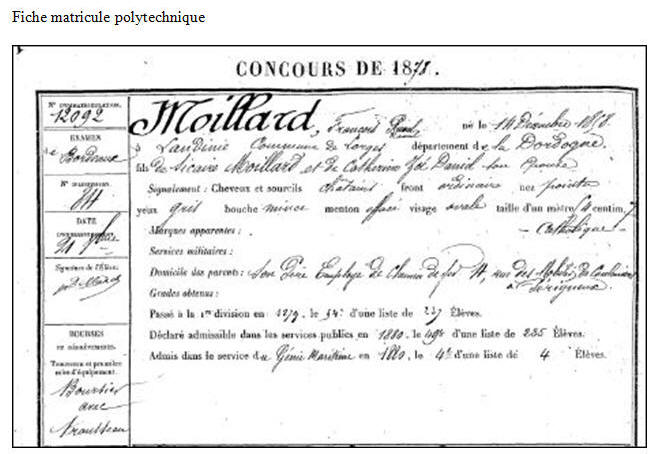 Fiche matricule polytechnique
CONCOURS DE 1878.
N° D'IMMATRICULATION.
12092
EXAMEN
de Bordeaux
N° D'ADMISSION.
DATE
Signature de l'Élève.
BOURSES
ET DÉGRÈVEMENTS.
Trousseau et première
mise d'équipement.
Boursier
avec
Trousseau
Moillard, François né le 14 Décembre 1858
à Commune de département de la Dordogne
fils de Sicaire Moillard et de Catherine Zoé David son épouse
Signalement : Cheveux et sourcils châtains front ordinaire nez pointu
yeux gris bouche mince menton effacé visage ovale taille d'un mètre centim.
Marques apparentes : - Catholique -
Services militaires :
Domicile des parents : Son Père Employé de Chemin de fer rue des
à Périgueux
Grades obtenus :
Passé à la 1re division en 1879, le d'une liste de 237 Élèves.
Déclaré admissible dans les services publics en 1880, le 49e d'une liste de 235 Élèves.
Admis dans le service du Génie Maritime en 1880, le 4e d'une liste de 4 Élèves.